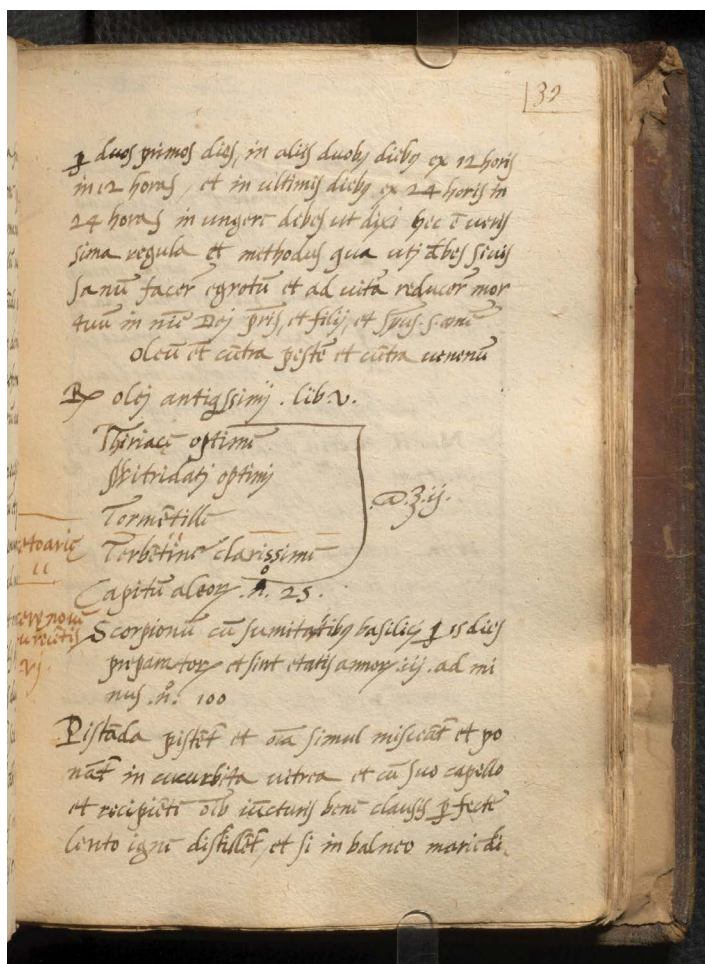 39
ꝑ duos primos dies, in aliis duobꝫ diebꝫ ex 12 horis
in 12 horas, et in ultimis diebꝫ ex 24 horis in
24 horas in ungere debes ut dixi hec ē veris
sima regula et methodus qua uti dēbes si vis
sanū facer̄ egrotū et ad vitā reducer̄ mor
tuū in nīe Dei pr̄is, et filij, et sp̄us. s. amē
Oleū et cūtra pestē et cūtra venenū
℞ olej antiqssimj . lib. v.
Thiriacę optimę
Mitridatj optimj
Tormētillę
Terbētinę clarissimę
.ā.ʒ.ij.
Capitū aleoꝝ. n̊. 25.
Scorpionū cū sumitatibꝫ basilicj ꝑ 15 dies
p̄paratoꝝ et sint etatis annoꝝ .iij. ad mi
nus. n̊. 100
Pistāda pistēt̄ et oīa simul misceāt̄ et po
nāt̄ in cucurbita vitrea et cū suo capello
et recipiēti oīb iūcturis bene clausis ꝑfecte
lento igne distillēt̄, et si in balneo marie di